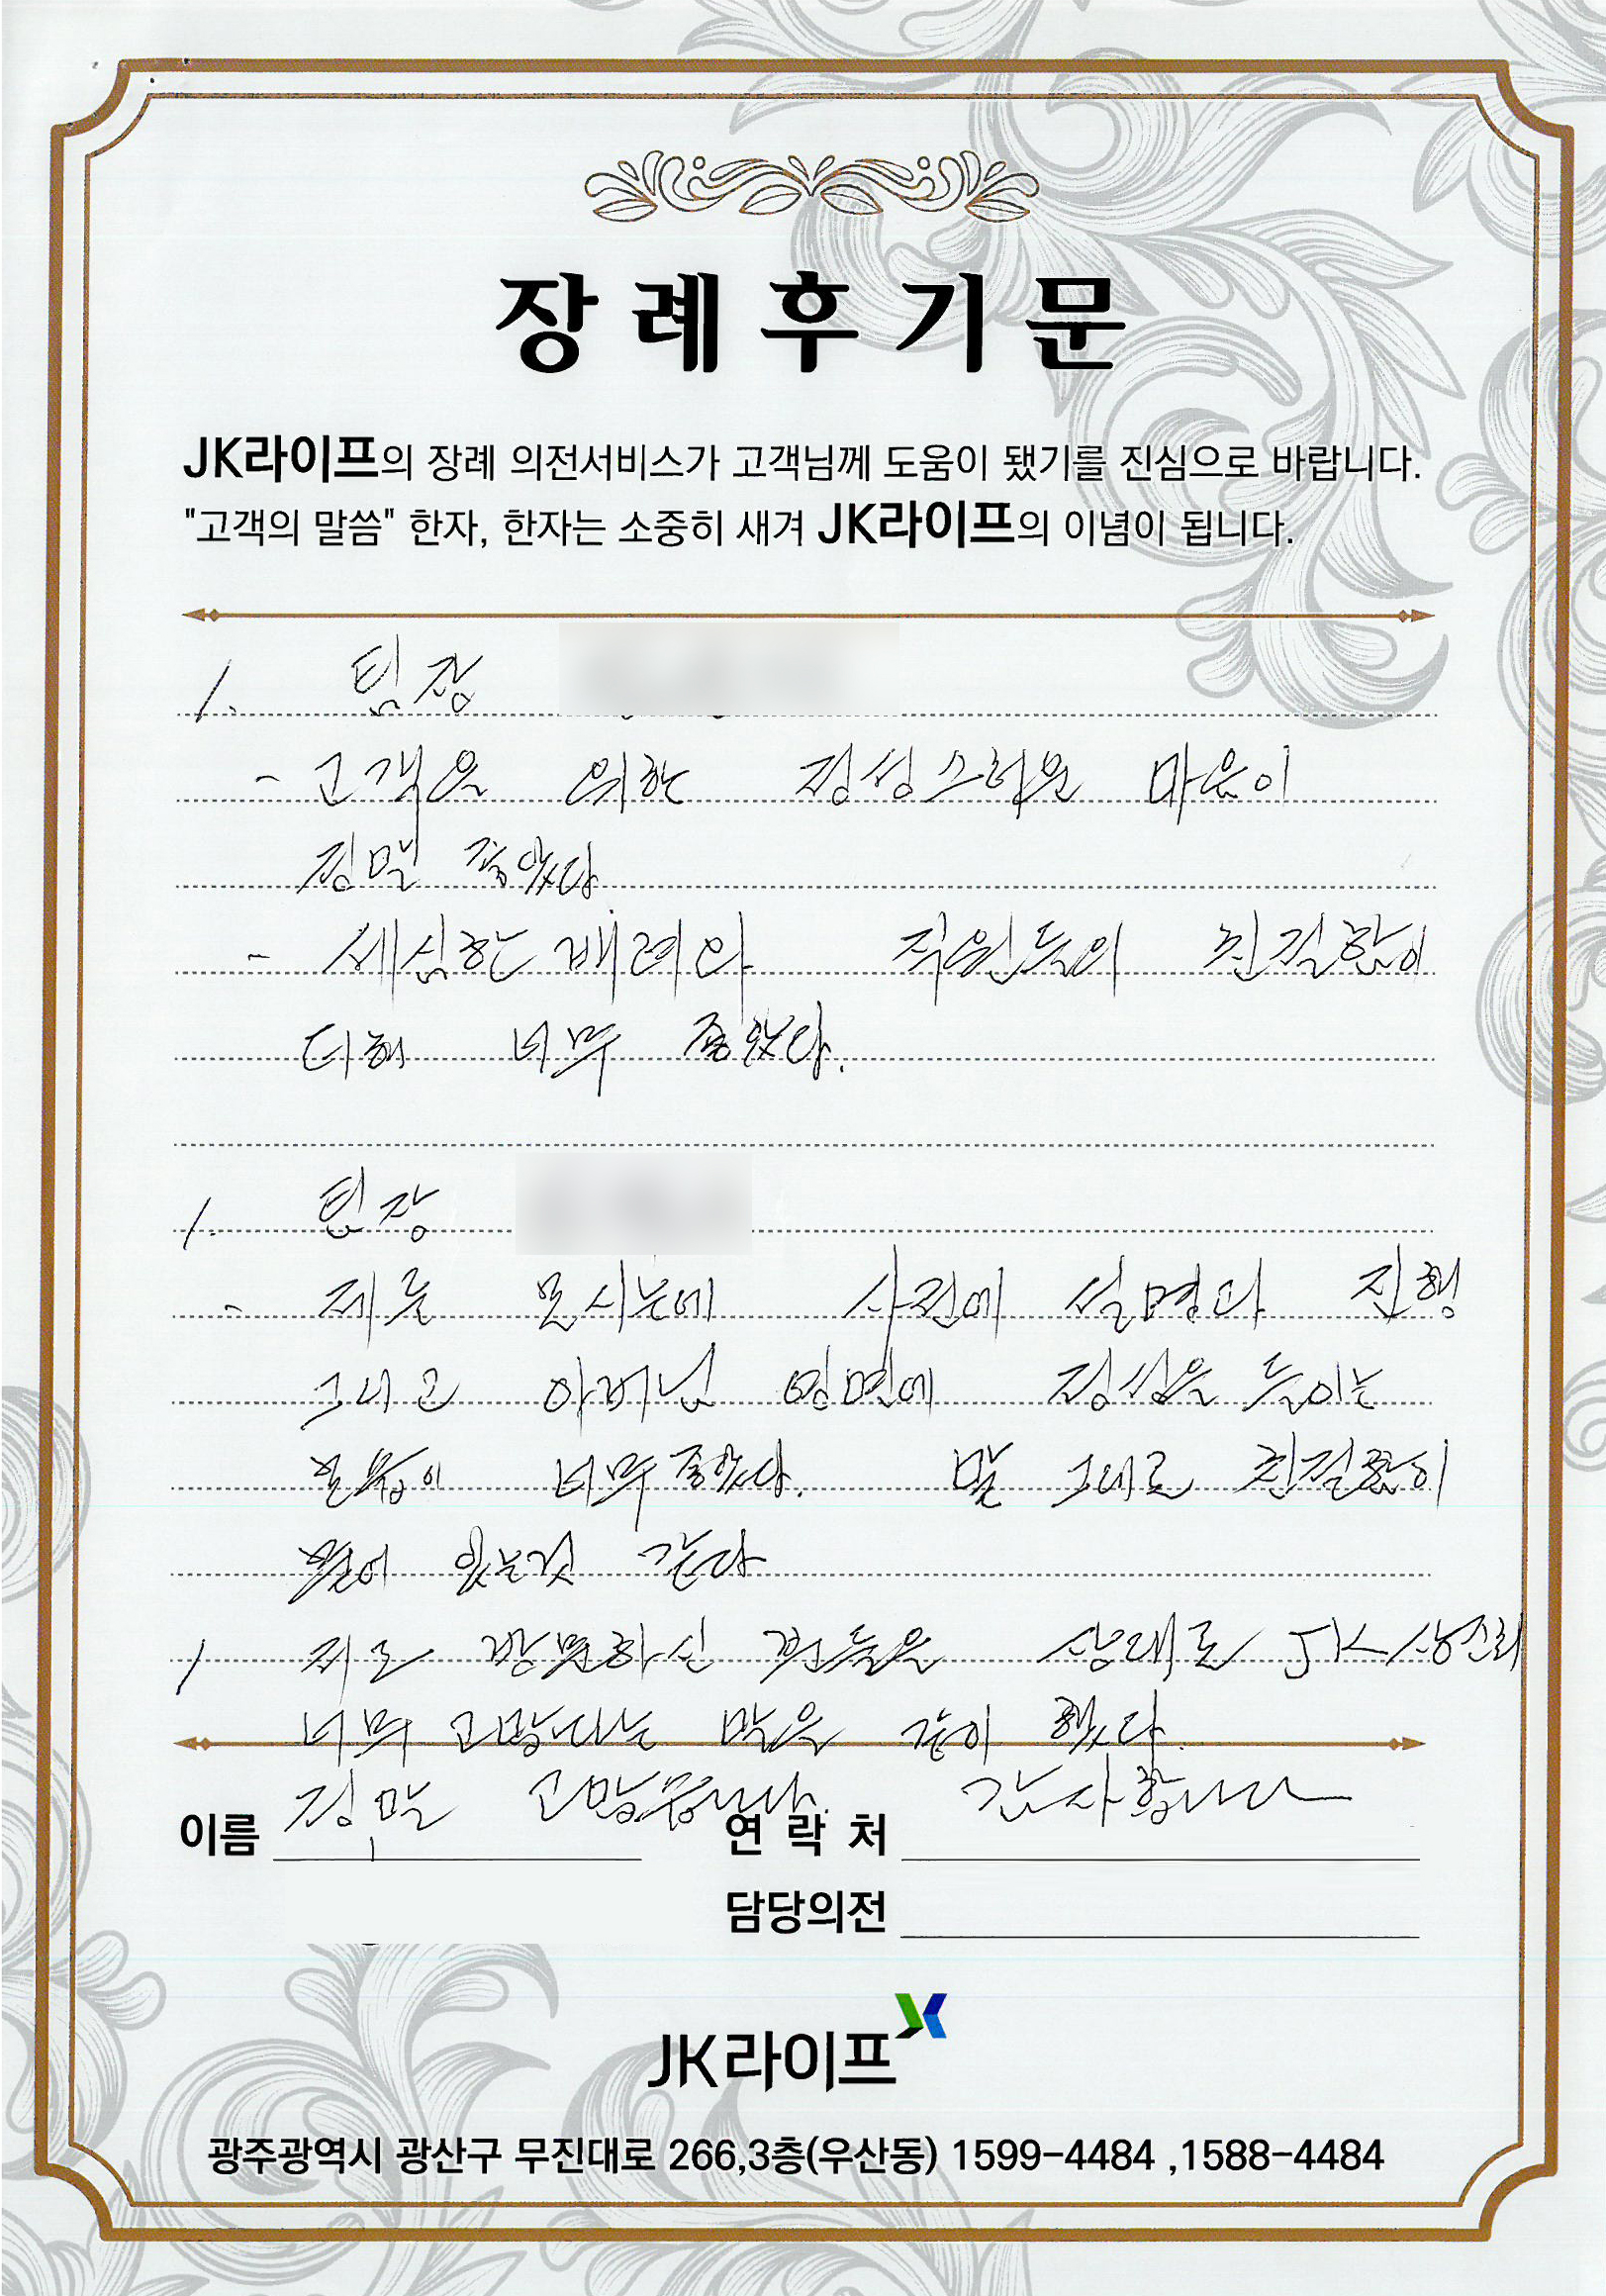 장례후기문
JK라이프의 장례 의전서비스가 고객님께 도움이 됐기를 진심으로 바랍니다.
"고객의 말씀" 한자, 한자는 소중히 새겨 JK라이프의 이념이 됩니다.
1. 팀장
- 고객을 위한 정성스러운 마음이
정말 좋았다
- 세심한 배려와 직원들의 친절함이
더해 너무 좋았다.
1. 팀장
- 제를 모시는데 사전에 설명과 진행
그리고 어머님 영면에 정성을 들이는
너무 좋았다. 말 그대로 친절함이
있는것 같다
1 방문하신 분들을 상대로 JK상조회
너무 고맙다는 말을 같이 했다.
정말 고맙습니다. 감사합니다
이름
연락처
담당의전
JK라이프
광주광역시 광산구 무진대로 266,3층(우산동) 1599-4484 ,1588-4484